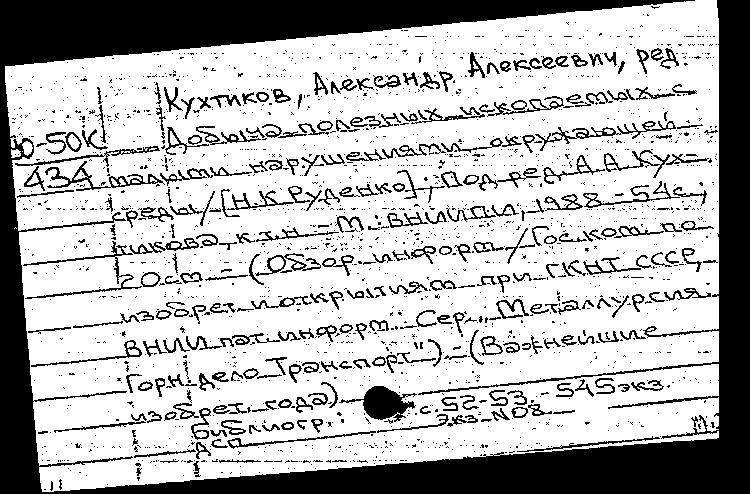 Кухтиков, Александр Алексеевич, ред.
Ю-50К Добыча полезных ископаемых с
434 малыми нарушениями окружающей
среды/[Н.К Руденко]; Под ред. А.А Кух-
тикова, к.т.н. – М.: ВНИИПИ, 1988 – 54с.;
20см – (Обзор. информ / Гос.ком. по
изобрет. и открытиям при ГКНТ СССР,
ВНИИ пат. информ. Сер. „Металлургия.
Горн. дело. Транспорт") – (Важнейшие
изобрет. года)
Библиогр.: с.52-53. – 545экз.
ДСП Экз. N08